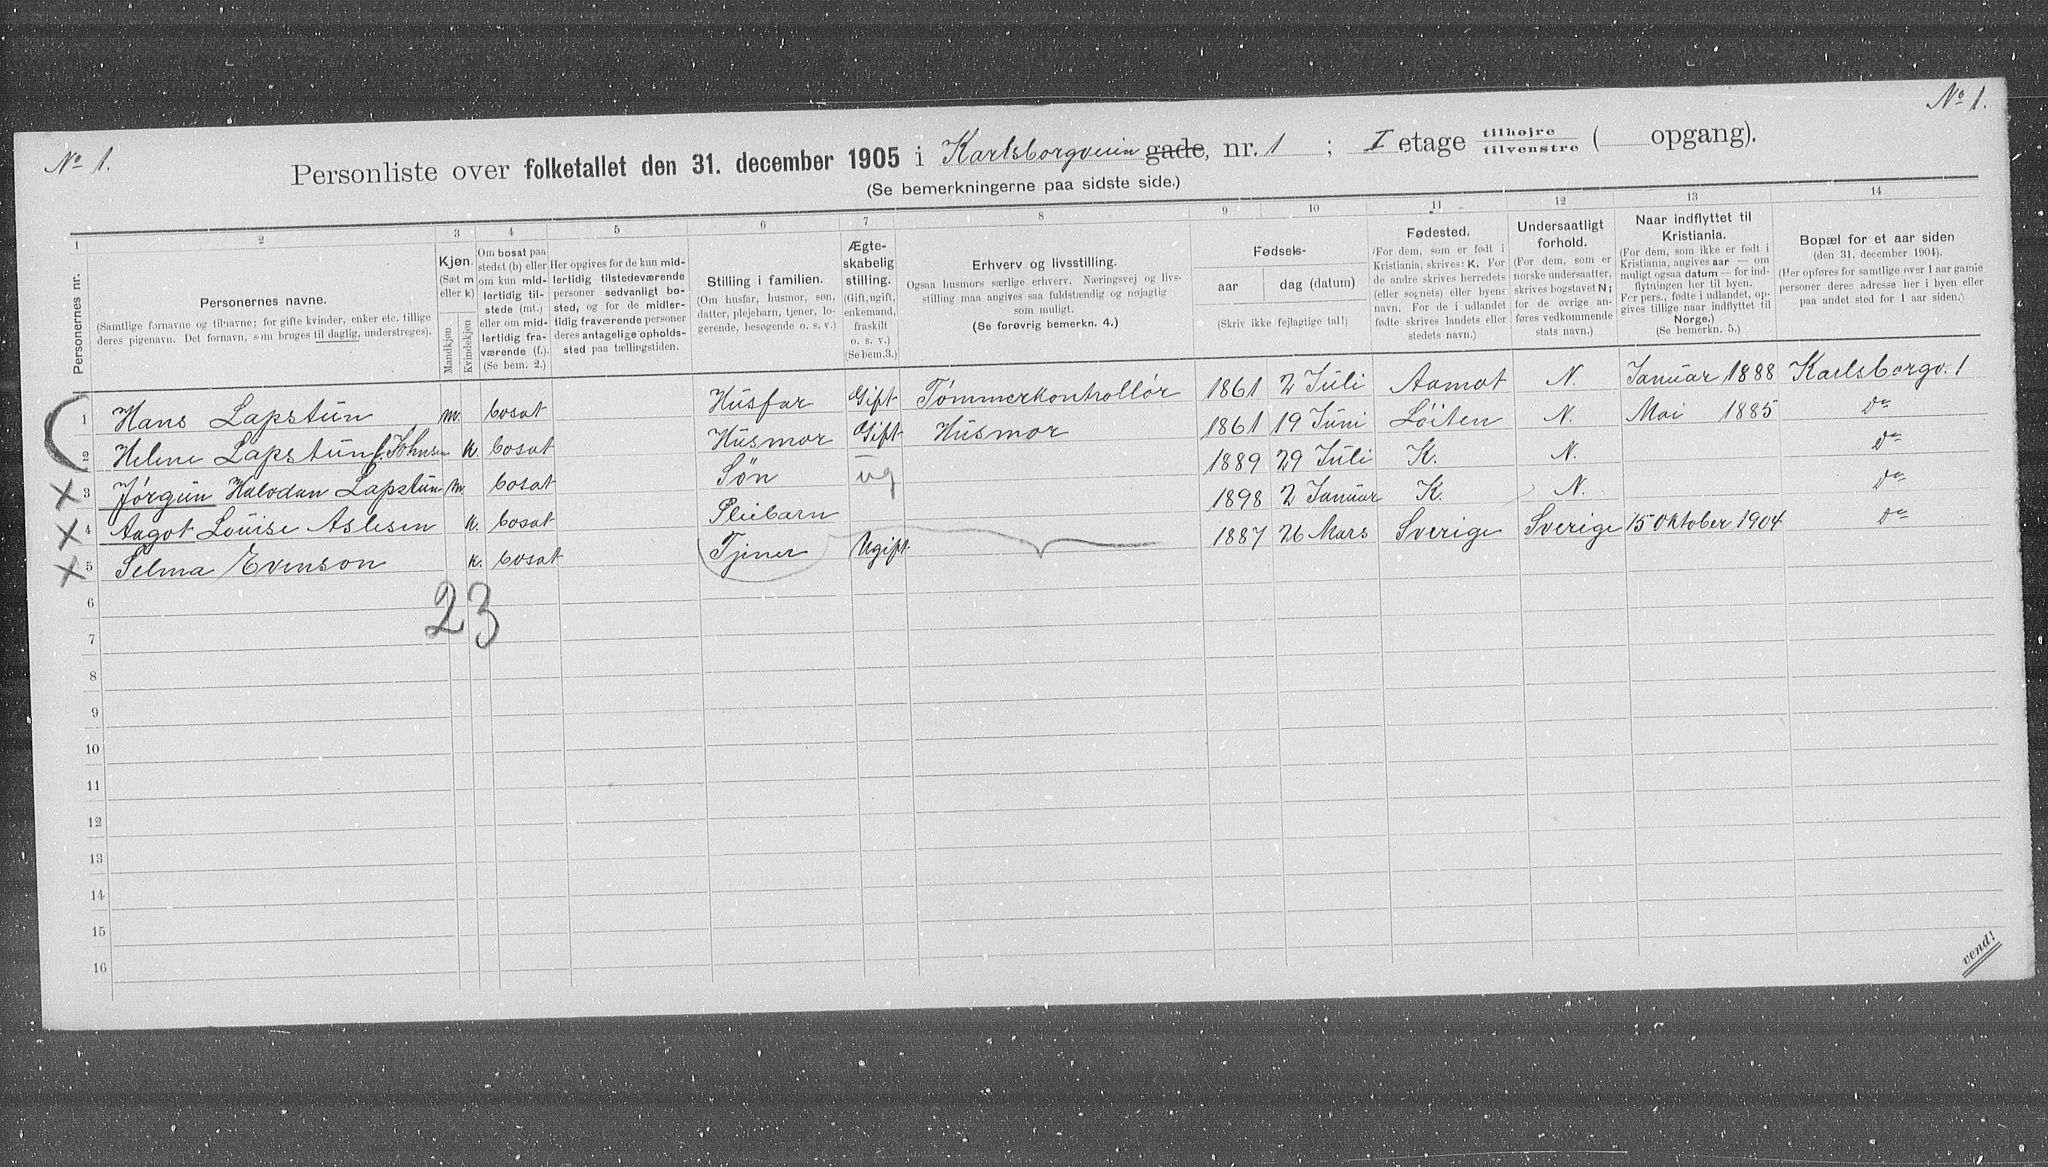 No 1.
No 1.
Personliste over folketallet den 31. december 1905 i Karlsborgveien gade, nr. 1 ; I etage tilhøjre tilvenstre ( opgang).
(Se bemerkningerne paa sidste side.)
1 2 3 4 5 6 7 8 9 10 11 12 13 14
Personernes nr.
Personernes navne.
(Samtlige fornavne og tilnavne; for gifte kvinder, enker etc. tillige
deres pigenavn. Det fornavn, som bruges til daglig, understreges).
Kjøn.
(Sæt m
eller k)
Mandkjøn.
Kvindekjøn
Om bosat paa
stedet (b) eller
om kun mid-
lertidig til-
stede (mt.)
eller om mid-
lertidig fra-
værende (f.).
(Se bem. 2.)
Her opgives for de kun mid-
lertidig tilstedeværende
personer sedvanlig bo-
sted, og for de midler-
tidig fraværende personer
deres antagelige opholds-
sted paa tællingstiden.
Stilling i familien.
(Om husfar, husmor, søn,
datter, plejebarn, tjener, lo-
gerende, besøgende o. s. v.)
Ægte-
skabelig
stilling.
(Gift, ugift,
enkemand,
fraskilt
o. s. v.)
(Se bem.3.)
Erhverv og livsstilling.
Ogsaa husmors særlige erhverv. Næringsvej og livs-
stilling maa angives saa fuldstændig og nøjagtig
som muligt.
(Se forøvrig bemerkn. 4.)
Fødsels-
aar
dag (datum)
(Skriv ikke fejlagtige tal!)
Fødested.
(For dem, som er født i
Kristiania, skrives: K. For
de andre skrives herredets
(eller sognets) eller byens
navn. For de i udlandet
fødte skrives landets eller
stedets navn.)
Undersaatligt
forhold.
(For dem, som er
norske undersaatter,
skrives bogstavet N;
for de øvrige an-
føres vedkommende
stats navn.)
Naar indflyttet til
Kristiania.
(For dem, som ikke er født i
Kristiania, angives aar — om
muligt ogsaa datum — for ind-
flytningen her til byen.
For pers., fødte i udlandet, op-
gives tillige naar indflyttet til
Norge.)
(Se bemerkn. 5.)
Bopæl for et aar siden
(den 31. december 1904).
(Her opføres for samtlige over 1 aar gamle
personer deres adresse her i byen eller
paa andet sted for 1 aar siden.)
1 Hans Lapstun m. bosat Husfar Gift Tømmerkontrollør 1861 2 Juli Aamot N. Januar 1888 Karlsborgv. 1
2 Helene Lapstun f. Johnsen k. bosat Husmor Gift Husmor 1861 19 Juni Løiten N. Mai 1885 Do
3 Jørgun Halvdan Lapstun m. bosat Søn ug 1889 29 Juli K. N. Do
4 Aagot Louise Aslesen k. bosat Pleiebarn 1898 2 Januar K. N. Do
5 Selma Evenson k. bosat Tjener Ugift 1887 26 Mars Sverige Sverige 15 Oktober 1904 Do
23
6
7
8
9
10
11
12
13
14
15
16
vend!